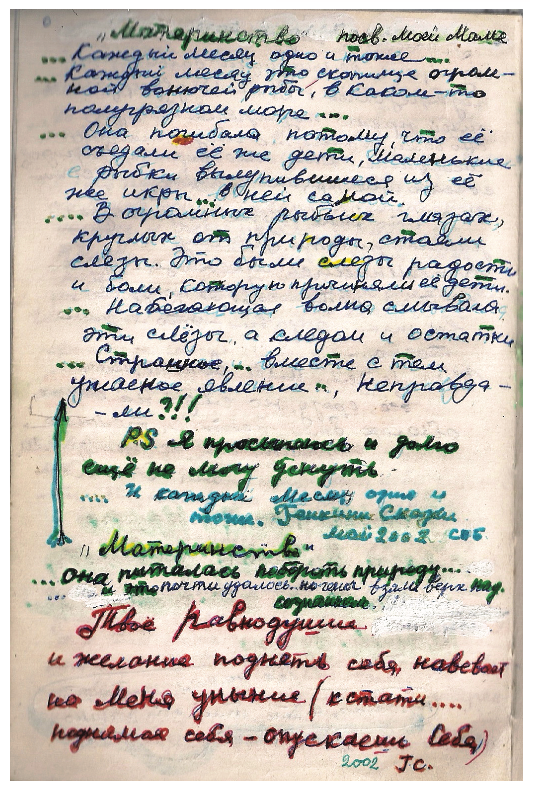 "Материнство" посв. Моей Маме
... Каждый месяц одно и тоже ....
... Каждый месяц это скопище огром-
ной вонючей рыбы, в каком-то
полугрязном море ....
... Она погибала, потому, что её
съедали её же дети, маленькие
рыбки вылупившиеся из её
же икры... в ней самой.
.... В огромных рыбьих глазах,
круглых от природы, стояли
слёзы. Это были слёзы радости
и боли, которую причиняли её дети.
... Набегающая волна смывала
эти слёзы, а следом и остатки
... Странное,... вместе с тем
ужасное явление", неправда-
-ли?!!
PS Я просыпаюсь и долго
ещё не могу
.... И каждый месяц одно и
тоже. Сказки
май 2002 Спб.
"Материнство"
... Она пыталась побороть природу....
и это почти удалось. но гены взяли верх над
сознанием.
Твоё Равнодушие
и желание поднять себя, навевает
на меня уныние (кстати....
поднимая себя - опускаеш Себя)
2002 ГС.